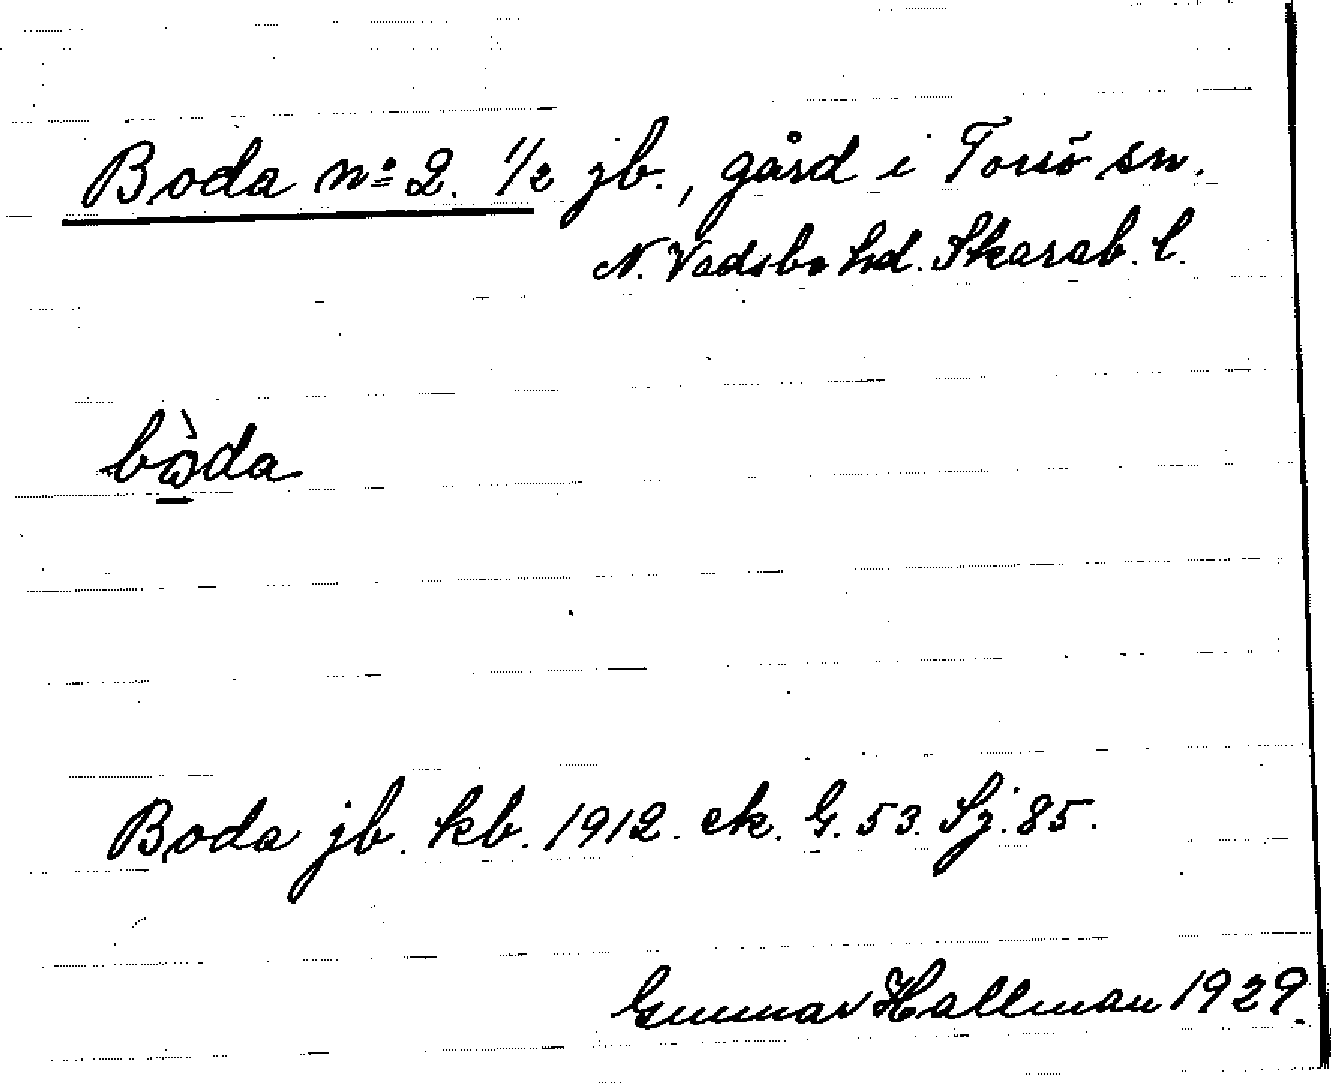 Boda nº 2. 1/2 jb., gård i Torsö sn.
N. Vadsbo hd. Skarab. l.
bòda
Boda jb. kb. 1912. ek. G. 53. Sj. 85.
Gunnar Hallman 1929.